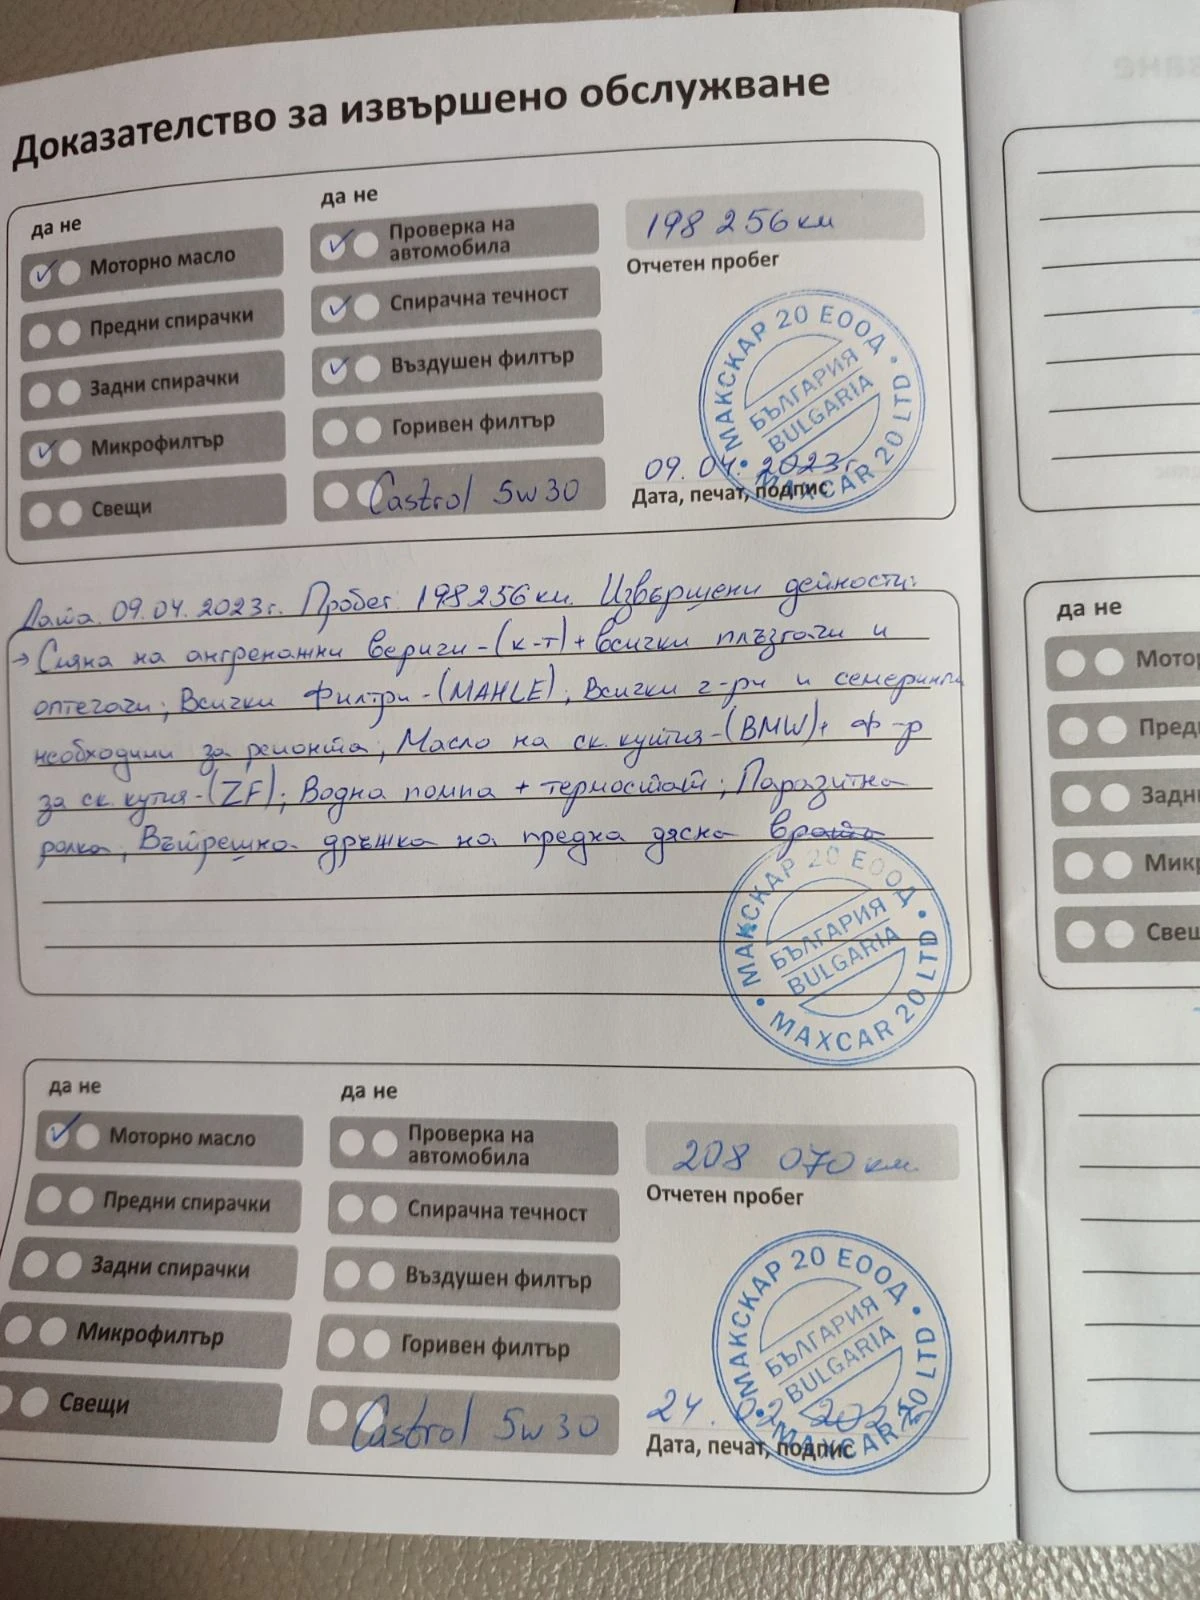 Доказателство за извършено обслужване
да не
да не
Моторно масло
Предни спирачки
Задни спирачки
Микрофилтър
Свещи
Проверка на
автомобила
Спирачна течност
Въздушен филтър
Горивен филтър
Castrol 5w30
198 256 км
Отчетен пробег
МАКСКАР 20 ЕООД
БЪЛГАРИЯ
BULGARIA
MAXCAR 20 LTD
09.04.2023г.
Дата, печат, подпис
Дата. 09.04.2023г. Пробег: 198256км. Извършени дейности:
→ Смяна на ангренажни вериги-(к-т)+всички плъзгачи и
оптегачи; Всички Филтри-(MAHLE); Всички г-ри и семеринги
необходими за ремонта; Масло на ск.кутия-(BMW)+ ф-р
за ск.кутия-(ZF); Водна помпа + термостат; Паразитна
ролка, Вътрешна дръжка на предна дясна врата
МАКСКАР 20 ЕООД
БЪЛГАРИЯ
BULGARIA
MAXCAR 20 LTD
да не
да не
Моторно масло
Предни спирачки
Задни спирачки
Микрофилтър
Свещи
Проверка на
автомобила
Спирачна течност
Въздушен филтър
Горивен филтър
Castrol 5w30
208 070 км.
Отчетен пробег
МАКСКАР 20 ЕООД
БЪЛГАРИЯ
BULGARIA
MAXCAR 20 LTD
24.02.
Дата, печат, подпис
да не